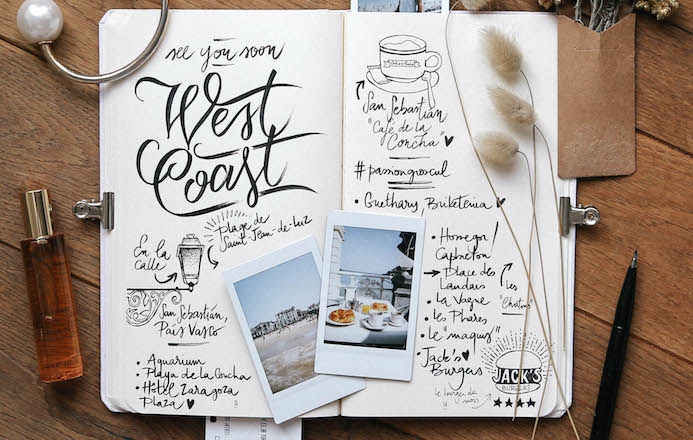 see you soon
West
Coast
Plage de
Saint-Jean-de-Luz
En la
calle
San Sebastián,
País Vasco
• Aquarium
• Playa de la Concha
• Hôtel Zaragoza
Plaza
San Sebastián
"Café de la
Concha"
#passiongroscul
• Guethary Briketenia
• Hossegor/
Capbreton
Place des
Landais
• La Vague
• Les Phares
• Le "maquis"
les
• Jack's
Burgers
JACK'S
BURGERS
le burger du
mois